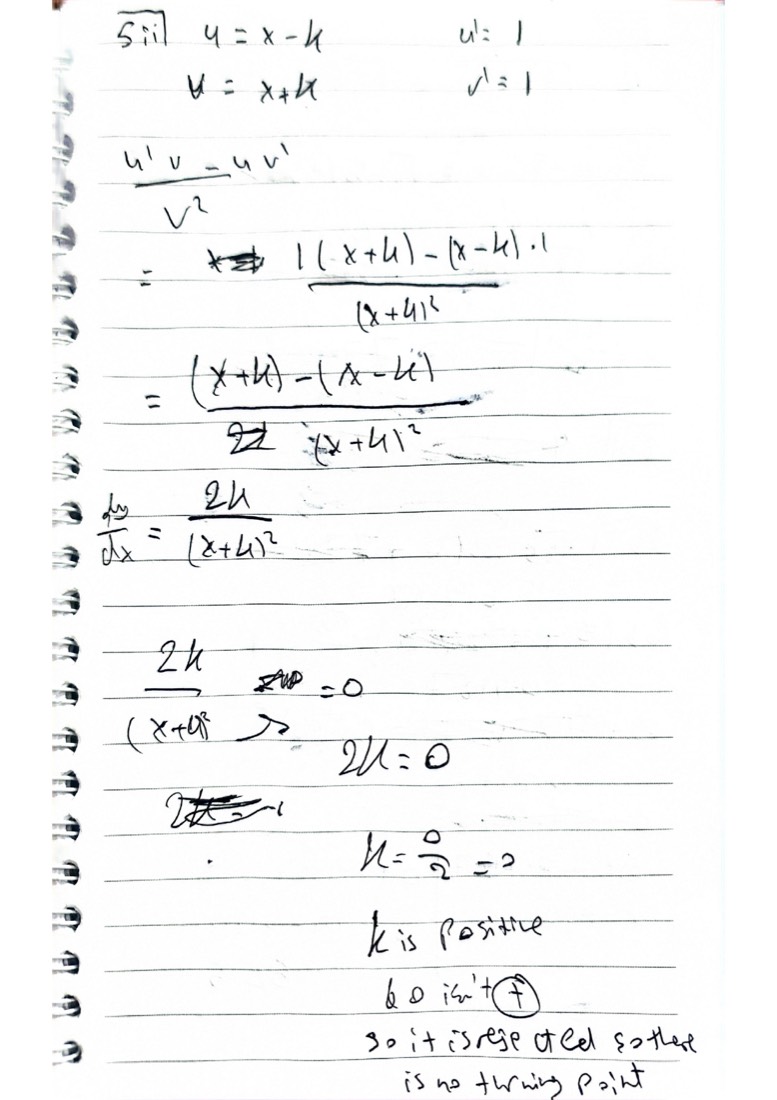 5ii] u = x - k u' = 1
v = x+k v' = 1
u'v - uv'
v²
= 1(x+k) - (x-k) · 1
(x+k)²
= (x+k) - (x-k)
(x+k)²
dy/dx = 2k
(x+k)²
2k = 0
(x+k)²
2k = 0
k = 0/2 = 0
k is positive
& 0 isn't (+)
so it is rejected so there
is no turning point